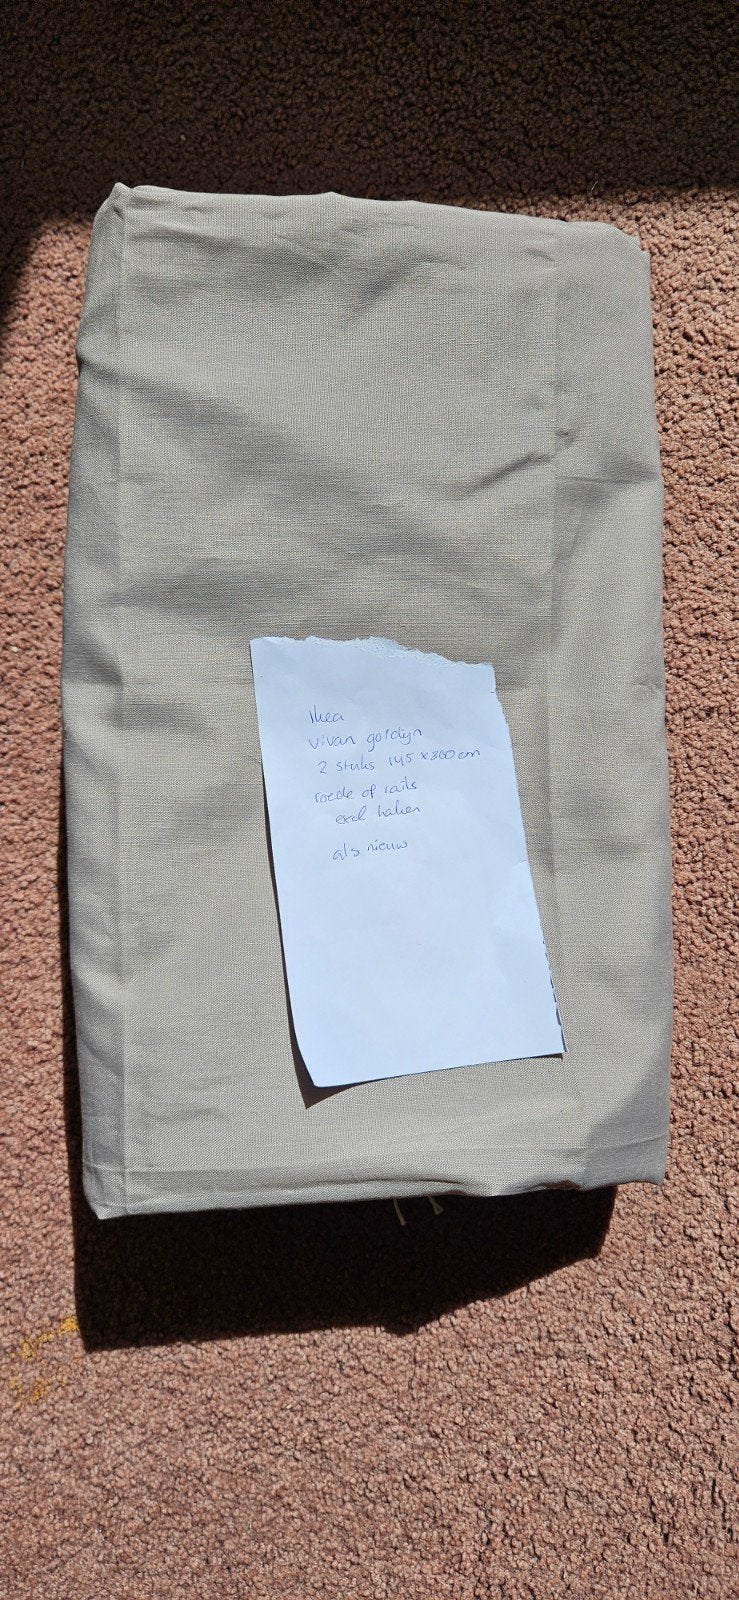 Ikea
vivan gordijn
2 stuks 145 x 300 cm
roede of rails
excl haken
als nieuw